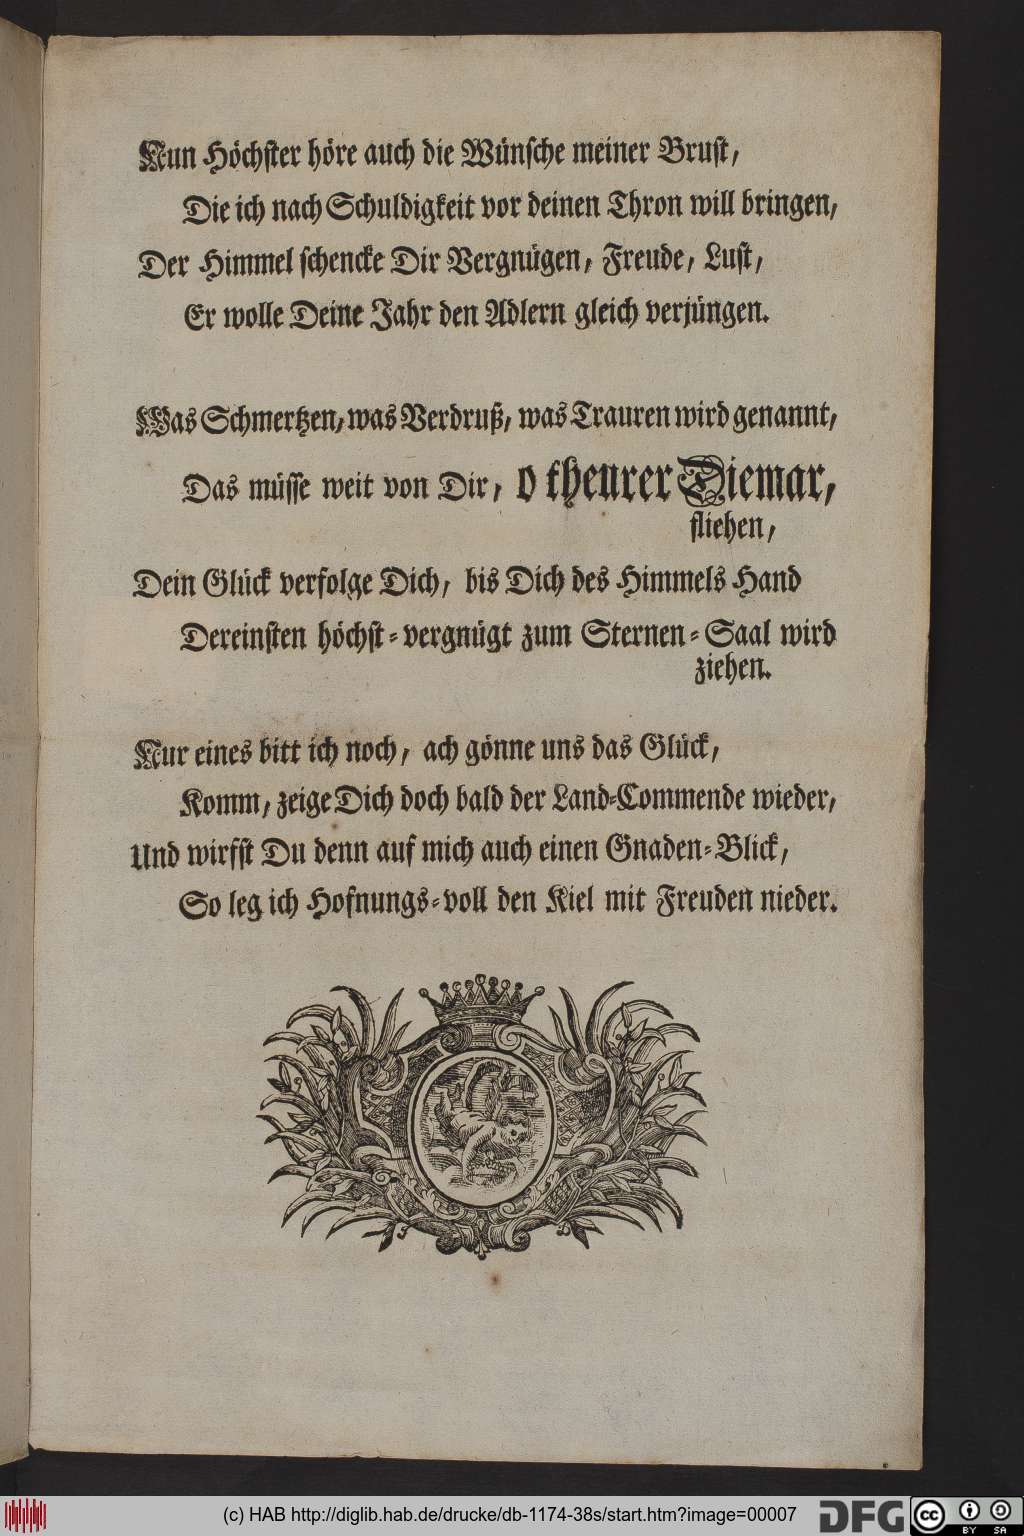 Nun Höchster höre auch die Wünsche meiner Brust,
Die ich nach Schuldigkeit vor deinen Thron will bringen,
Der Himmel schencke Dir Vergnügen, Freude, Lust,
Er wolle Deine Jahr den Adlern gleich verjüngen.
Was Schmertzen, was Verdruß, was Trauren wird genannt,
Das müsse weit von Dir, o theurer Diemar,
fliehen,
Dein Glück verfolge Dich, bis Dich des Himmels Hand
Dereinsten höchst-vergnügt zum Sternen-Saal wird
ziehen.
Nur eines bitt ich noch, ach gönne uns das Glück,
Komm, zeige Dich doch bald der Land-Commende wieder,
Und wirfst Du denn auf mich auch einen Gnaden-Blick,
So leg ich Hofnungs-voll den Kiel mit Freuden nieder.
(c) HAB http://diglib.hab.de/drucke/db-1174-38s/start.htm?image=00007
DFG
cc BY SA